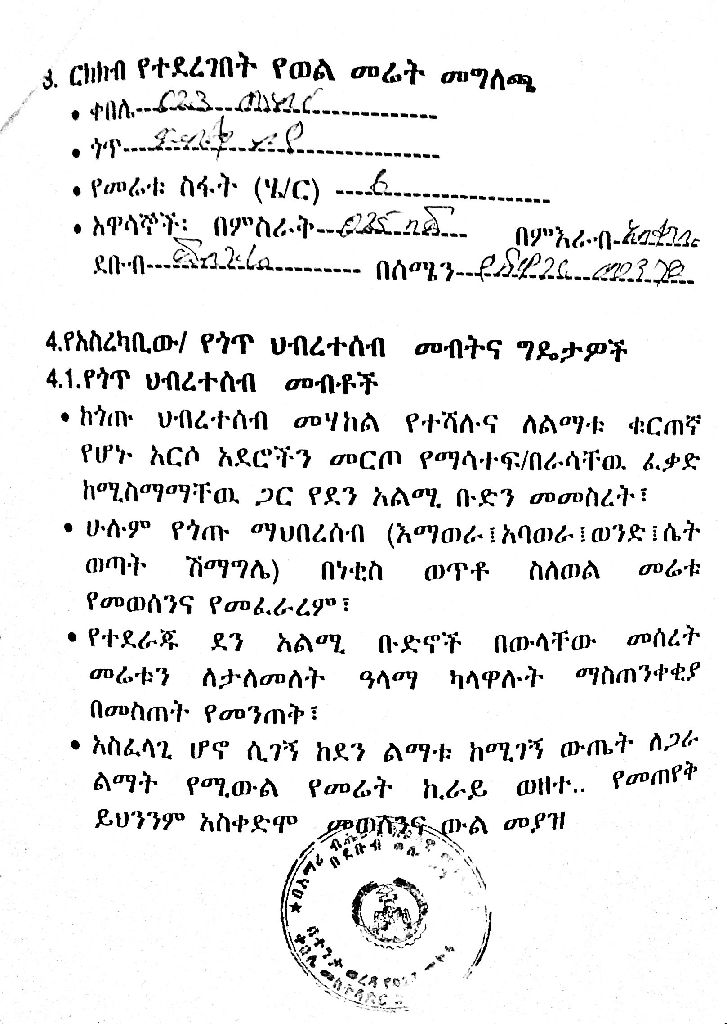 3. ርክክብ የተደረገበት የወል መሬት መግለጫ
• ቀበሌ
• ጎጥ
• የመሬቱ ስፋት (ሄ/ር) 6
• አዋሳኞች፡ በምስራቅ በምእራብ
ደቡብ በሰሜን
4.የአስረካቢው/ የጎጥ ህብረተሰብ መብትና ግዴታዎች
4.1.የጎጥ ህብረተሰብ መብቶች
• ከጎጡ ህብረተሰብ መሃከል የተሻሉና ለልማቱ ቁርጠኛ
የሆኑ አርሶ አደሮችን መርጦ የማሳተፍ/በራሳቸዉ ፈቃድ
ከሚስማማቸዉ ጋር የደን አልሚ ቡድን መመስረት፤
• ሁሉም የጎጡ ማህበረሰብ (እማወራ፤አባወራ፤ወንድ፤ሴት
ወጣት ሽማግሌ) በነቂስ ወጥቶ ስለወል መሬቱ
የመወሰንና የመፈራረም፤
• የተደራጁ ደን አልሚ ቡድኖች በውላቸው መሰረት
መሬቱን ለታለመለት ዓላማ ካላዋሉት ማስጠንቀቂያ
በመስጠት የመንጠቅ፤
• አስፈላጊ ሆኖ ሲገኝ ከደን ልማቱ ከሚገኝ ውጤት ለጋራ
ልማት የሚውል የመሬት ኪራይ ወዘተ.. የመጠየቅ
ይህንንም አስቀድሞ መወሰንና ውል መያዝ